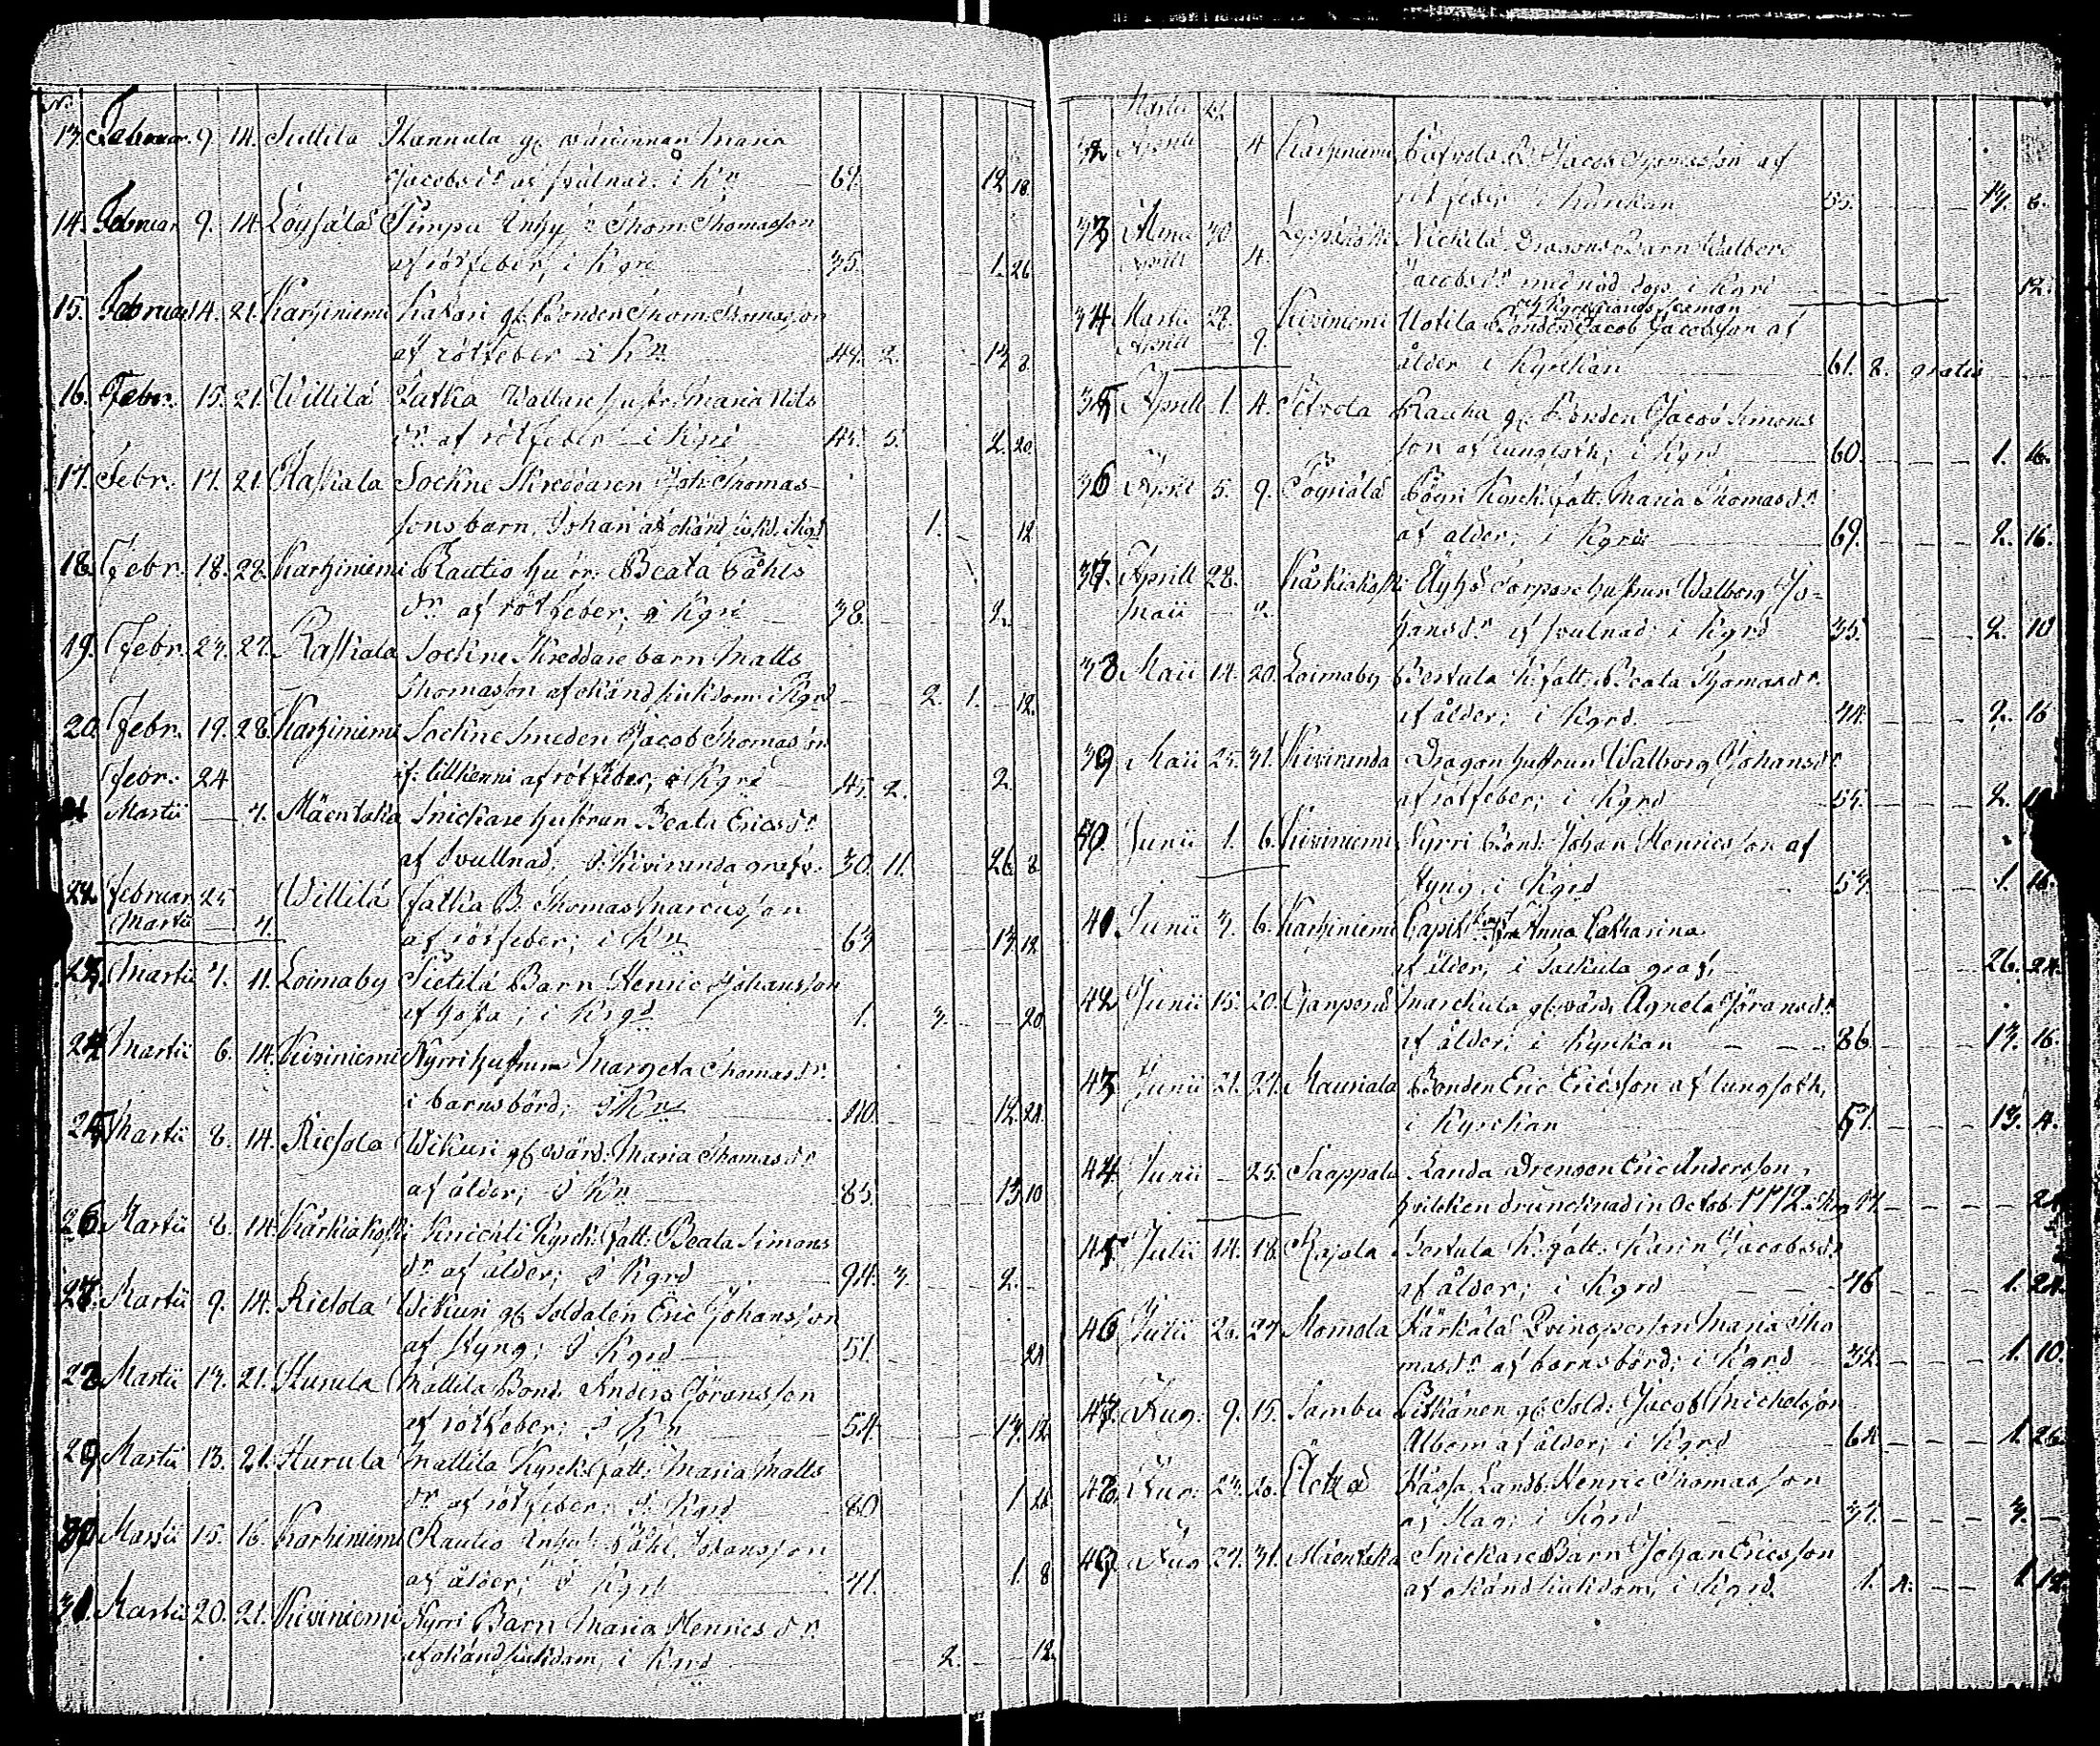 No.
13. Februar. 9. 14. Sullila Hannula gl. värdinnan Maria
Jacobsdr af svulnad. i Kn 67. 12 18
14. Februar 9. 14 Löysälä Timpa Inhy: Thom: Thomasson
af rötfeber, i Kgrd 35. 1. 26
15. Februar 14. 21. Karhiniemi Kakari gl. Bonden Thom: Thomasson
af rötfeber i Kn 44. 2. 13 8
16. Febr. 15. 21. Willilä Latka Wallare hustr. Maria Nils
dr. af rötfeber i Kgrd 45. 5. 2. 20.
17. Febr. 17. 21. Raskala Sockne Skreddaren Joh: Thomas-
sons barn, Johan af okänd siukd. i Kgd 1. 12
18. Febr. 18. 28. Karhiniemi Rautio hustr. Beata Påhls
dr. af rötfeber, i Kgrd 38. 2.
19. Febr. 23. 27. Raskala Sockne Skreddare barn Matts
Thomasson af okänd siukdom i Kgrd 2. 1. 12.
20. Febr. 19. 28. Karhiniemi Sockne Smeden Jacob Thomasson
Febr. 24 af rötfeber, i Kgrd 45. 2. 2.
21 Martii 7. Mäentaka Snickare hustrun Beata Ericsdr.
af svullnad, i Kiviranda graf. 30. 11. 26. 8
22. Februar. 25 Willilä Latka B. Thomas Marcusson
Martii 7. af rötfeber; i Kn 63 13 12
23. Martii 7. 11. Loimaby Sietilä Barn Henric Johansson
af hosta; i Krgd 1. 3. 20
24 Martii 6. 14. Kiviniemi Kyrri hustrun Margeta Thomasdr.
i barnsbörd; i Kn 40. 12. 24.
25 Martii 8. 14. Riesola Wikuri gl. värd: Maria Thomasdr
af ålder; i Kn 85. 13 10
26 Martii 8. 14. Kärkiakoski Knichti Kyrck: fatt: Beata Simons
dr. af ålder; i Kgrd 94. 3. 2.
27. Martii 9. 14. Riesola Wikuri gl. Soldaten Eric Johansson
af styng; i Kgrd 51. 24
28. Martii 13. 21. Hurula Mattila Bond. Anders Göransson
af rötfeber; i Kn 54 13. 12.
29 Martii 13. 21. Hurula Mattila Kyrck: fatt: Maria Matts
dr. af rötfeber; i Kgrd 80 1
30 Martii 15. 16. Karhiniemi Rautio Inhy: Påhl Johansson
af ålder; i Kgrd 71. 1. 8
31. Martii 20. 21. Kiviniemi Kyrri Barn Maria Henricsdr.
af okänd siukdom, i Kgrd 2. 12.
Martii
32 Aprill 4. Karhiniemi Jacob Thomasson af
rötfeber i Kürckan 55. 13. 8.
33 Martii 30. Nickilä Dragons Barn Walborg
Aprill 4. Jacobsdr i Kgrd 12.
34 Martii 28. Kiviniemi Uotila Bonden Jacob Jacobsson af
Aprill 9. ålder i Kyrckan 61. 8. gratis
35 Aprill 1. 4. Pefvola Rauha gl. Bonden Jacob Simons
son af lungsoth; i Kgrd 60. 1. 16.
36 Aprill 5. 9. Pöyriälä Pöyri Kyrck: fatt: Maria Thomasdr.
af ålder; i Kgrd 69. 2. 16.
37. Aprill 28. Kärkiakoski Torpare hustrun Walborg Jo-
Maii 2. hansdr. af svulnad; i Kgrd 35. 2. 10
38 Maii 14. 20. Loimaby Bertula K. fatt: Beata Thomasdr.
af ålder; i Kgrd. 74. 2. 16
39 Maii 25. 31. Kiviranda Dragon hustrun Walborg Johansdr
af rötfeber; i Kgrd 55. 2.
40. Junii 1. 6. Kiviniemi Kyrri Bond: Johan Henricsson af
styng, i Kgrd 57. 1. 16.
41. Junii 3. 6. Karhiniemi Anna Catharina
af ålder; i graf. 26. 24.
42 Junii 15. 20. Marckula gl. värd. Agneta Göransdr.
af ålder; i Kyrckan 86. 13. 16.
43 Junii 21. 27. Mauriala Bonden Eric Ericsson af lungsoth,
i Kyrckan 51. 13. 4.
44 Junii 25. Saappala Landa Drengen Eric Andersson,
hvilcken druncknad in Octob. 1772. 24
45 Julii 14. 18. Rajala Bertula K. fatt: Karin Jacobsdr.
af ålder; i Kgrd 76 1. 24.
46 Julii 26. 27. Momola Härkälä Qvinsperson Maria Tho
masdr. af barnsbörd; i Kgrd 32. 1. 10.
47. Aug. 9. 15. Sambu Pitkänen gl. Sold: Jacob Michelsson
Albom af ålder; i Kgrd 62. 1. 26.
48. Aug. 23. 26. Hässa Landb: Henric Thomasson
af slag; i Kgrd 37. 3.
49. Aug 27. 31. Mäentaka Snickare Barn Johan Ericsson
af okänd siukdom, i Kgrd. 1. 4. 1. 12